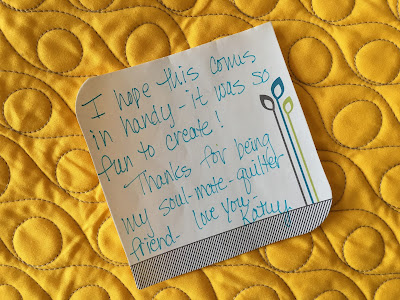 I hope this comes
in handy - it was so
fun to create!
Thanks for being
my soul-mate-quilter
friend - love you
Kathy